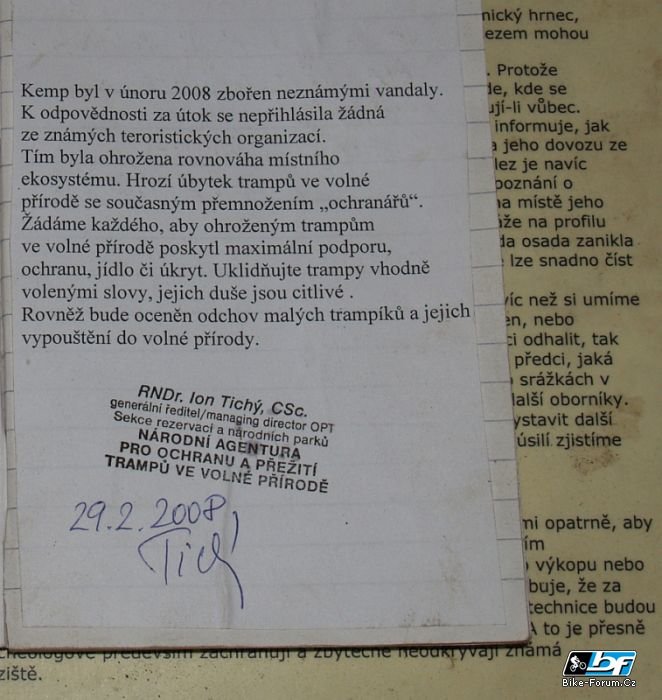 Kemp byl v únoru 2008 zbořen neznámými vandaly.
K odpovědnosti za útok se nepřihlásila žádná
ze známých teroristických organizací.
Tím byla ohrožena rovnováha místního
ekosystému. Hrozí úbytek trampů ve volné
přírodě se současným přemnožením „ochranářů“.
Žádáme každého, aby ohroženým trampům
ve volné přírodě poskytl maximální podporu,
ochranu, jídlo či úkryt. Uklidňujte trampy vhodně
volenými slovy, jejich duše jsou citlivé .
Rovněž bude oceněn odchov malých trampíků a jejich
vypouštění do volné přírody.
RNDr. Ion Tichý, CSc.
generální ředitel/managing director OPT
Sekce rezervací a národních parků
NÁRODNÍ AGENTURA
PRO OCHRANU A PŘEŽITÍ
TRAMPŮ VE VOLNÉ PŘÍRODĚ
29.2.2008
Tichý
nický hrnec,
ezem mohou
. Protože
de, kde se
ují-li vůbec.
informuje, jak
a jeho dovozu ze
lez je navíc
poznání o
na místě jeho
áže na profilu
da osada zanikla
lze snadno číst
víc než si umíme
en, nebo
ci odhalit, tak
předci, jaká
o srážkách v
alší oborníky.
ystavit další
úsilí zjistíme
mi opatrně, aby
ím
o výkopu nebo
buje, že za
technice budou
A to je přesně
cheologové především zachraňují a zbytečně neodkrývají známá
ziště.
bf
Bike-Forum.Cz